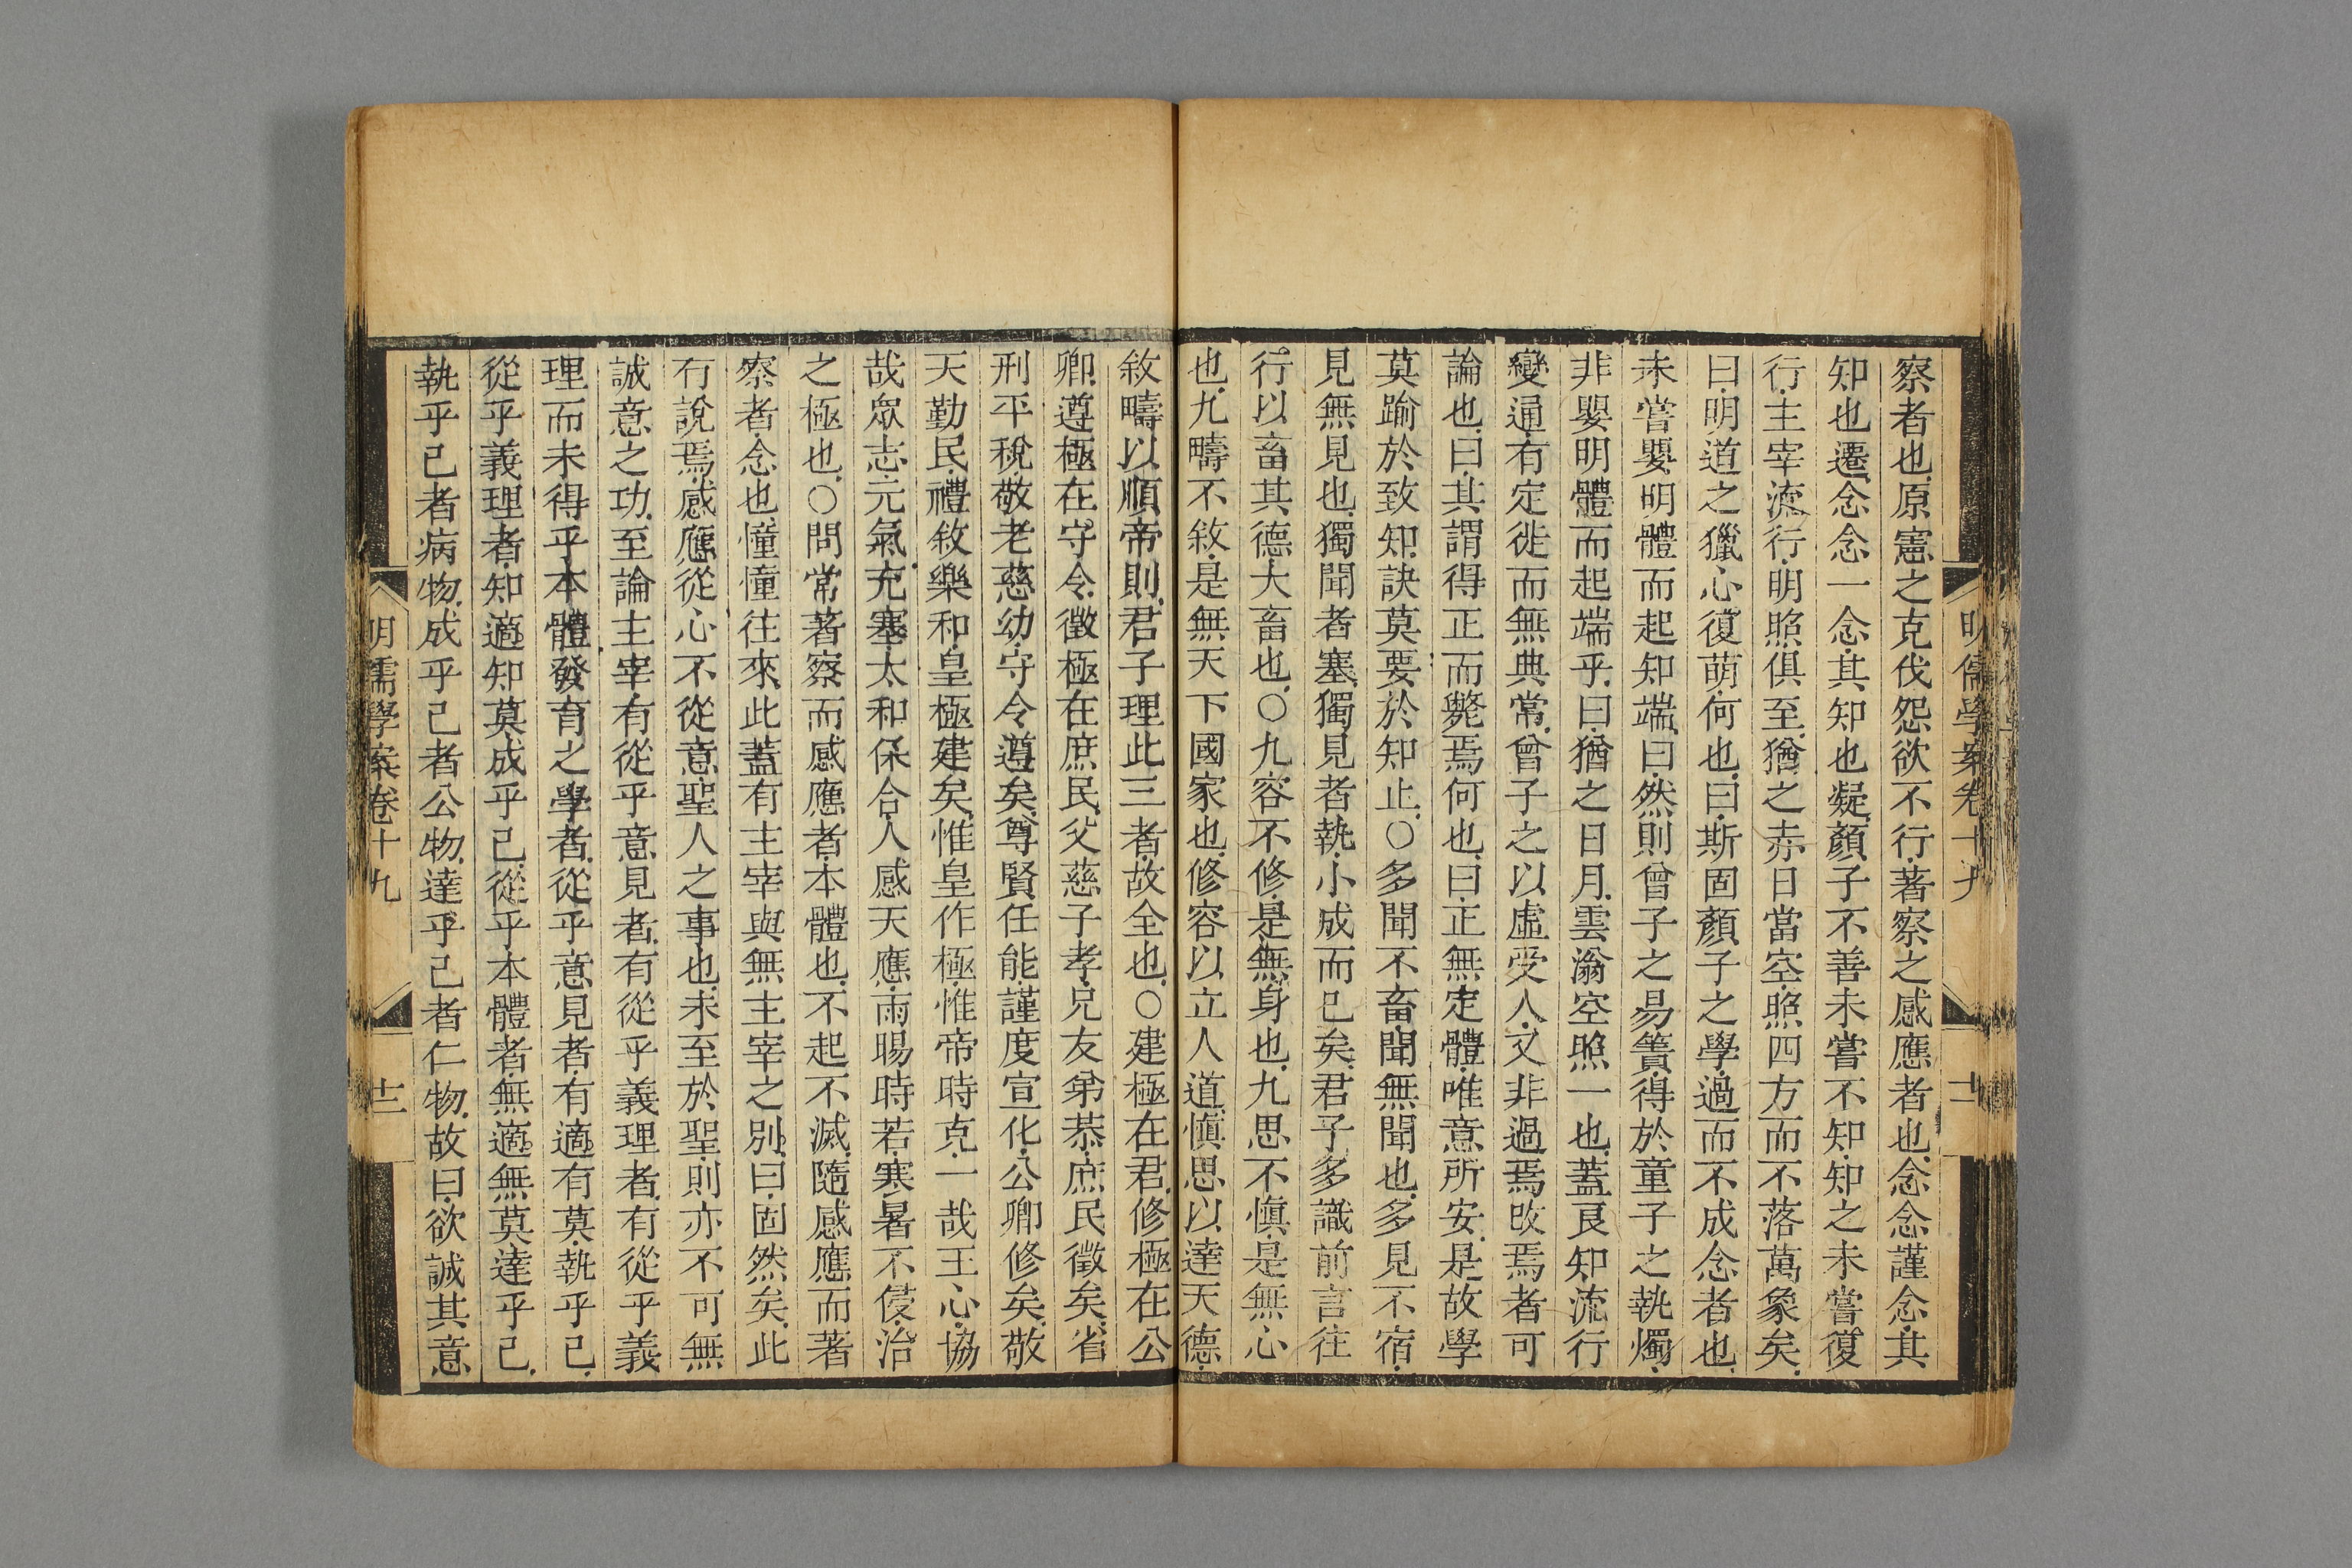 明儒學案卷十九
十二
察者也原憲之克伐怨欲不行著察之感應者也念念謹念其
知也遷念念一念其知也凝顏子不善未嘗不知知之未嘗復
行主宰流行明照俱至猶之赤日當空照四方而不落萬象矣
曰明道之獵心復萌何也曰斯固顏子之學過而不成念者也
未嘗嬰明體而起知端曰然則曾子之易簀得於童子之執燭
非嬰明體而起端乎曰猶之日月雲滃空照一也蓋良知流行
變通有定徙而無典常曾子之以虛受人又非過焉改焉者可
論也曰其謂得正而斃焉何也曰正無定體唯意所安是故學
莫踰於致知訣莫要於知止○多聞不畜聞無聞也多見不宿
見無見也獨聞者塞獨見者執小成而已矣君子多識前言往
行以畜其德大畜也○九容不修是無身也九思不愼是無心
也九疇不敘是無天下國家也修容以立人道愼思以達天德
敘疇以順帝則君子理此三者故全也○建極在君修極在公
卿遵極在守令徵極在庶民父慈子孝兄友弟恭庶民徵矣省
刑平稅敬老慈幼守令遵矣尊賢任能謹度宣化公卿修矣敬
天勤民禮敘樂和皇極建矣惟皇作極惟帝時克一哉王心協
哉眾志元氣充塞太和保合人感天應雨暘時若寒暑不侵治
之極也○問常著察而感應者本體也不起不滅隨感應而著
察者念也憧憧往來此蓋有主宰與無主宰之別曰固然矣此
有說焉感應從心不從意聖人之事也未至於聖則亦不可無
誠意之功至論主宰有從乎意見者有從乎義理者有從乎義
理而未得乎本體發育之學者從乎意見者有適有莫執乎己
從乎義理者知適知莫成乎己從乎本體者無適無莫達乎己
執乎己者病物成乎己者公物達乎己者仁物故曰欲誠其意
明儒學案卷十九
十二